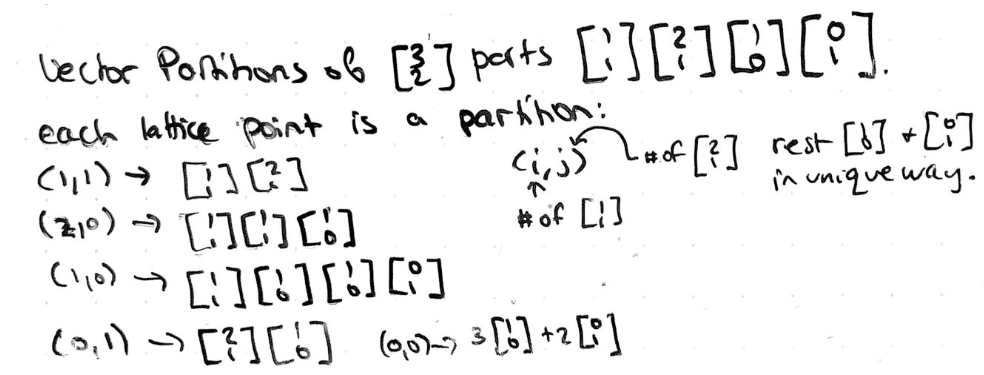 Vector Partitions of [3 2] parts [1 1] [2 1] [1 0] [0 1].
each lattice point is a partition:
(1,1) → [1 1] [2 1] (i,j) # of [2 1] rest [1 0] + [0 1]
in unique way.
# of [1 1]
(2,0) → [1 1] [1 1] [1 0]
(1,0) → [1 1] [1 0] [1 0] [0 1]
(0,1) → [2 1] [1 0] (0,0) → 3 [1 0] + 2 [0 1]